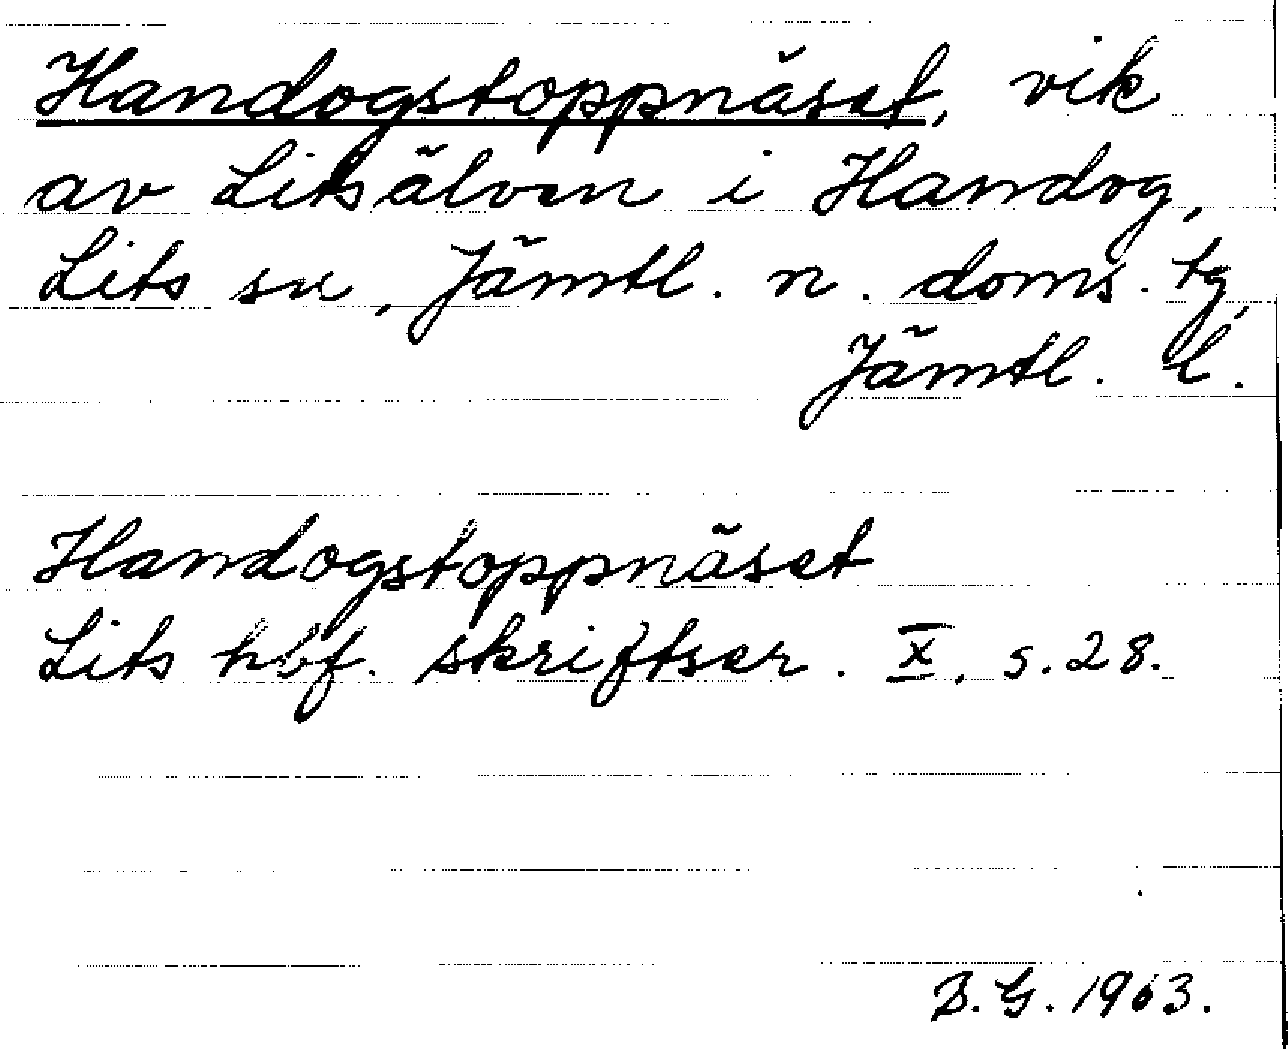 Handogstoppnäset, vik
av Litsälven i Handog,
Lits sn, Jämtl. n. doms. tg,
Jämtl. l.
Handogstoppnäset
Lits hbf. skriftser. X, s. 28.
B.G. 1963.